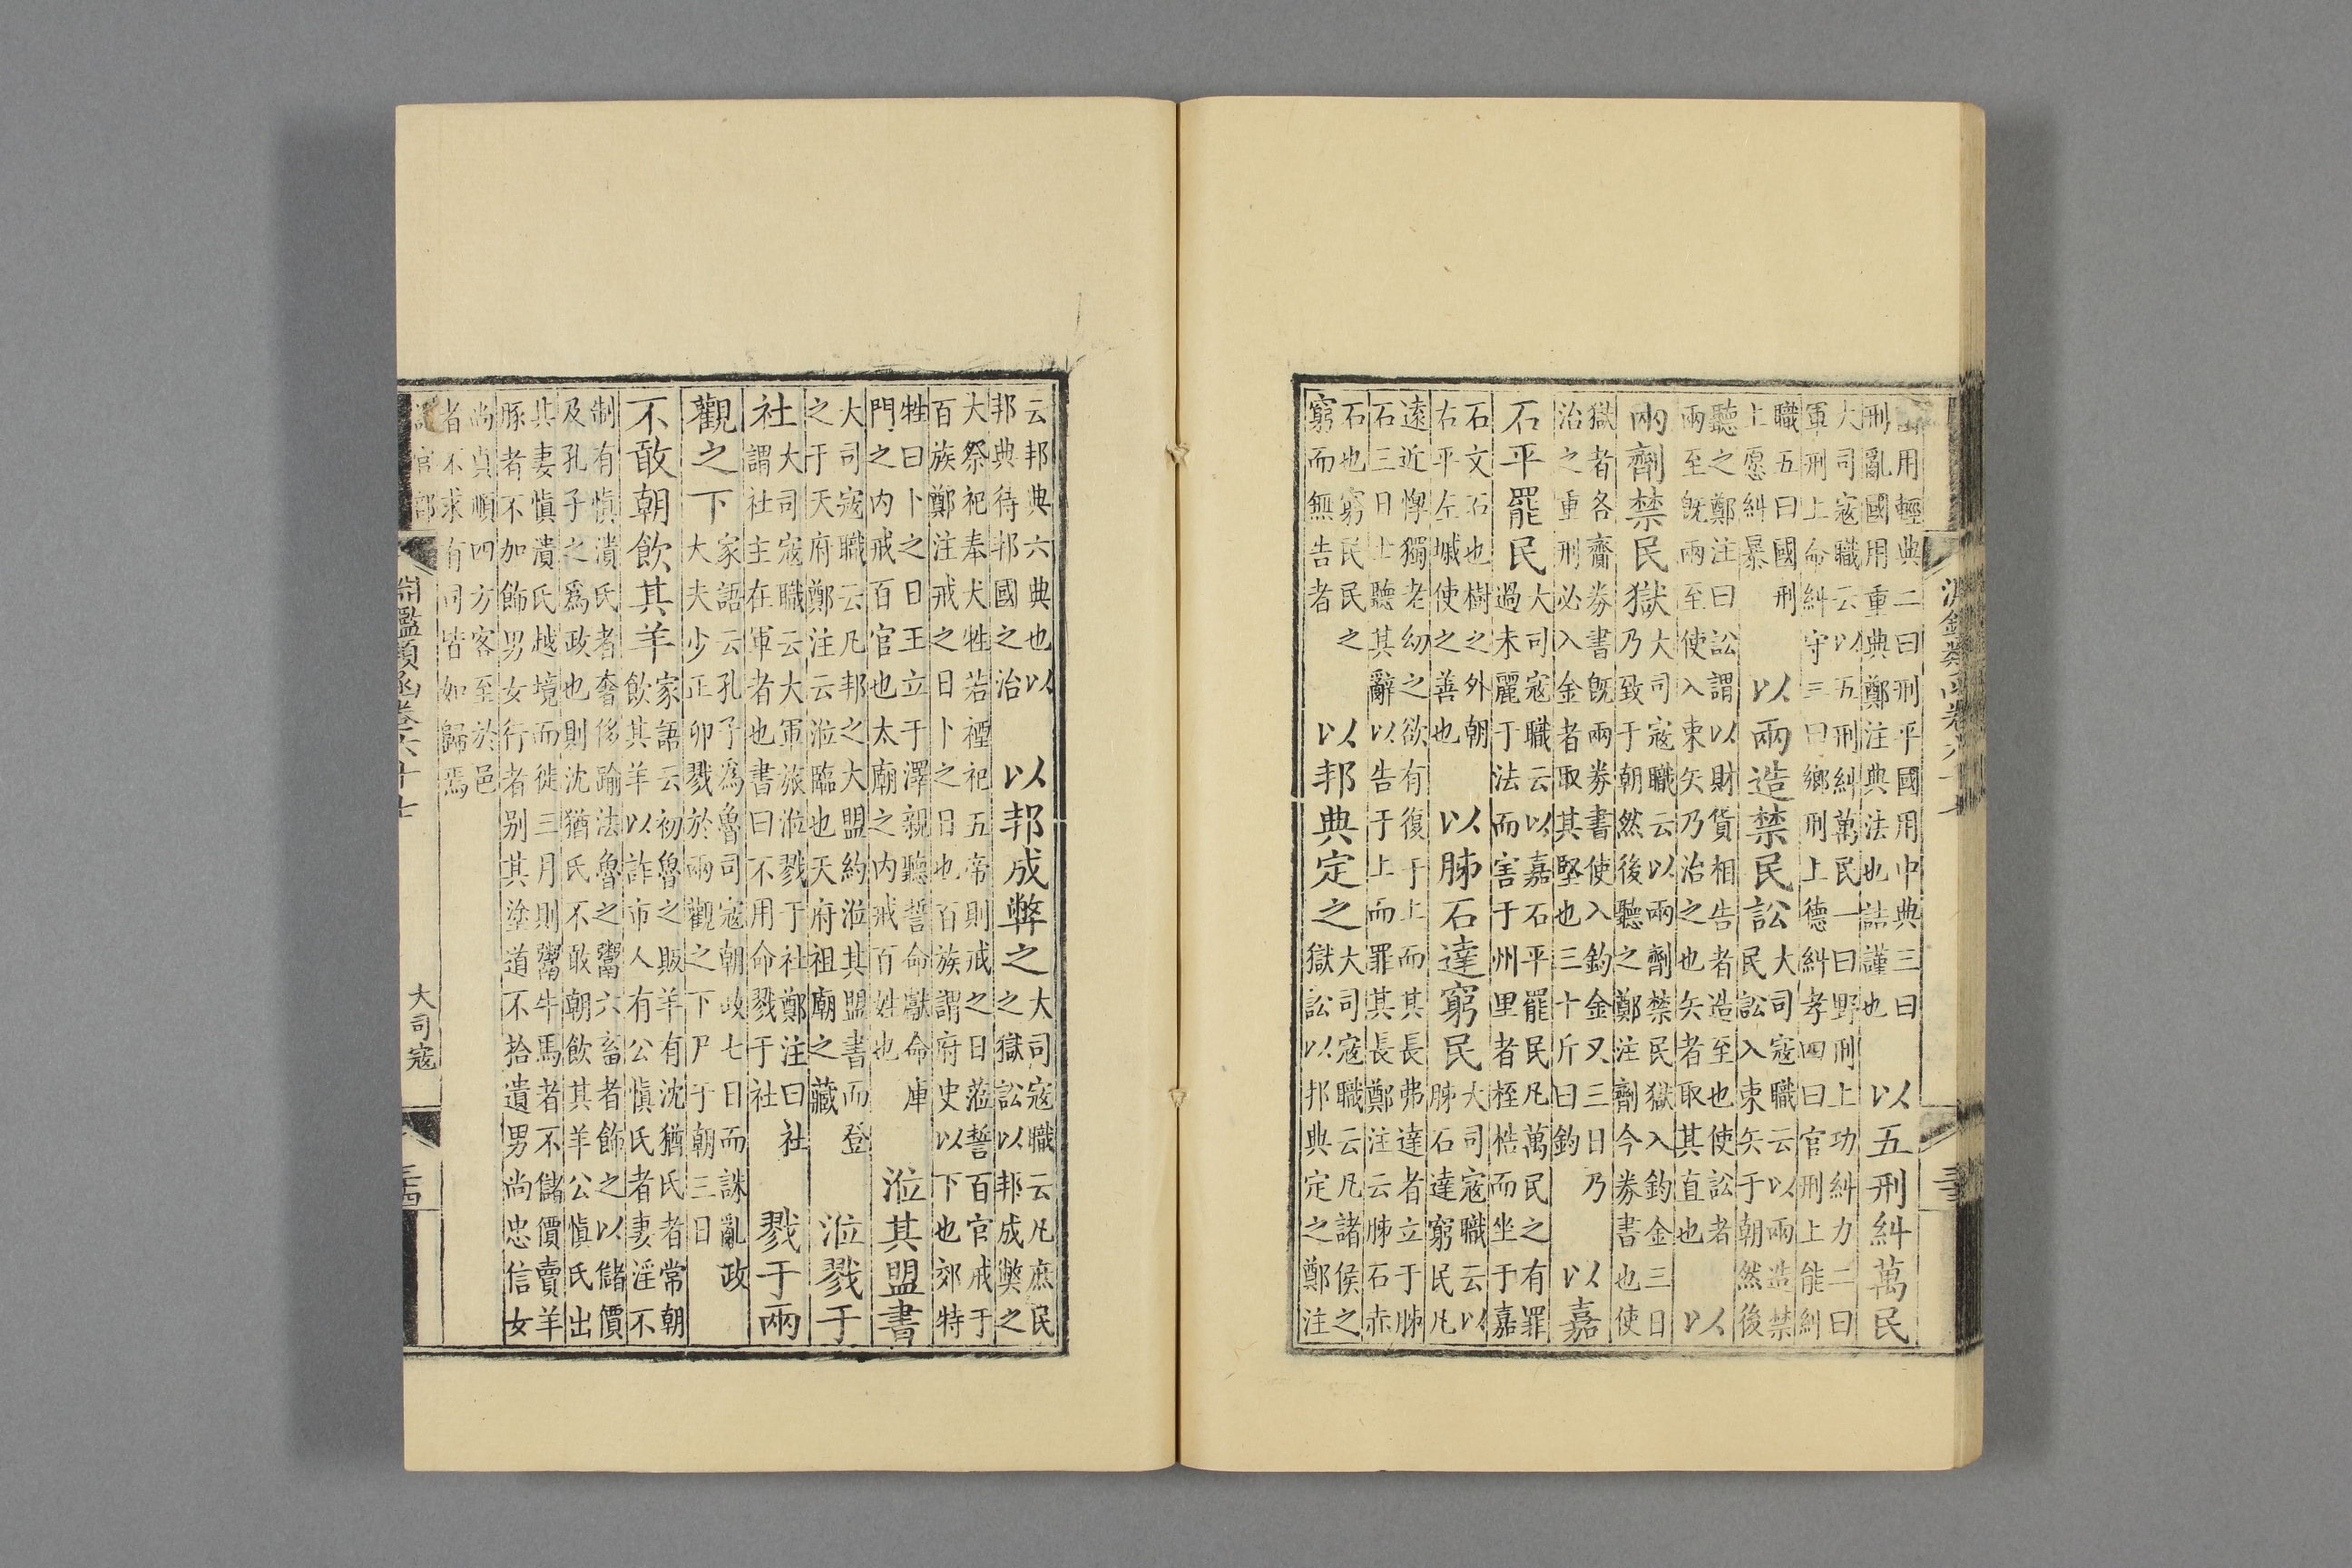 用輕典二曰刑平國用中典三曰
刑亂國用重典鄭注典法也詰謹也
以五刑糾萬民
大司寇職云以五刑糾萬民一曰野刑上功糾力二曰
軍刑上命糾守三曰鄉刑上德糾孝四曰官刑上能糾
職五曰國刑
上愿糾暴
以兩造禁民訟
大司寇職云以兩造禁
民訟入束矢于朝然後
聽之鄭注曰訟謂以財貨相告者造至也使訟者
兩至旣兩至使入束矢乃治之也矢者取其直也
以
兩劑禁民獄
大司寇職云以兩劑禁民獄入鈞金三日
乃致于朝然後聽之鄭注劑今券書也使
獄者各齎券書旣兩券書使入鈞金又三日乃
治之重刑必入金者取其堅也三十斤曰鈞
以嘉
石平罷民
大司寇職云以嘉石平罷民凡萬民之有罪
過未麗于法而害于州里者桎梏而坐于嘉
石文石也樹之外朝
右平左墄使之善也
以肺石達窮民
大司寇職云以
肺石達窮民凡
遠近惸獨老幼之欲有復于上而其長弗達者立于肺
石三日士聽其辭以告于上而罪其長鄭注云肺石赤
石也窮民民之
窮而無告者
以邦典定之
大司寇職云凡諸侯之
獄訟以邦典定之鄭注
云邦典六典也以
邦典待邦國之治
以邦成弊之
大司寇職云凡庶民
之獄訟以邦成弊之
大祭祀奉犬牲若禋祀五帝則戒之日蒞誓百官戒于
百族鄭注戒之日卜之日也百族謂府史以下也郊特
牲曰卜之日王立于澤親聽誓命獻命庫
門之内戒百官也太廟之内戒百姓也
涖其盟書
大司寇職云凡邦之大盟約涖其盟書而登
之于天府鄭注云涖臨也天府祖廟之藏
涖戮于
社
大司寇職云大軍旅涖戮于社鄭注曰社
謂社主在軍者也書曰不用命戮于社
戮于兩
觀之下
家語云孔子爲魯司寇朝政七日而誅亂政
大夫少正卯戮於兩觀之下尸于朝三日
不敢朝飲其羊
家語云初魯之販羊有沈猶氏者常朝
飲其羊以詐市人有公愼氏者妻淫不
制有愼潰氏者奢侈踰法魯之鬻六畜者飾之以儲價
及孔子之爲政也則沈猶氏不敢朝飲其羊公愼氏出
其妻愼潰氏越境而徙三月則鬻牛馬者不儲價賣羊
豚者不加飾男女行者別其塗道不拾遺男尚忠信女
尚貞順四方客至於邑
者不求有司皆如歸焉
淵鑑類函卷六十七
大司寇